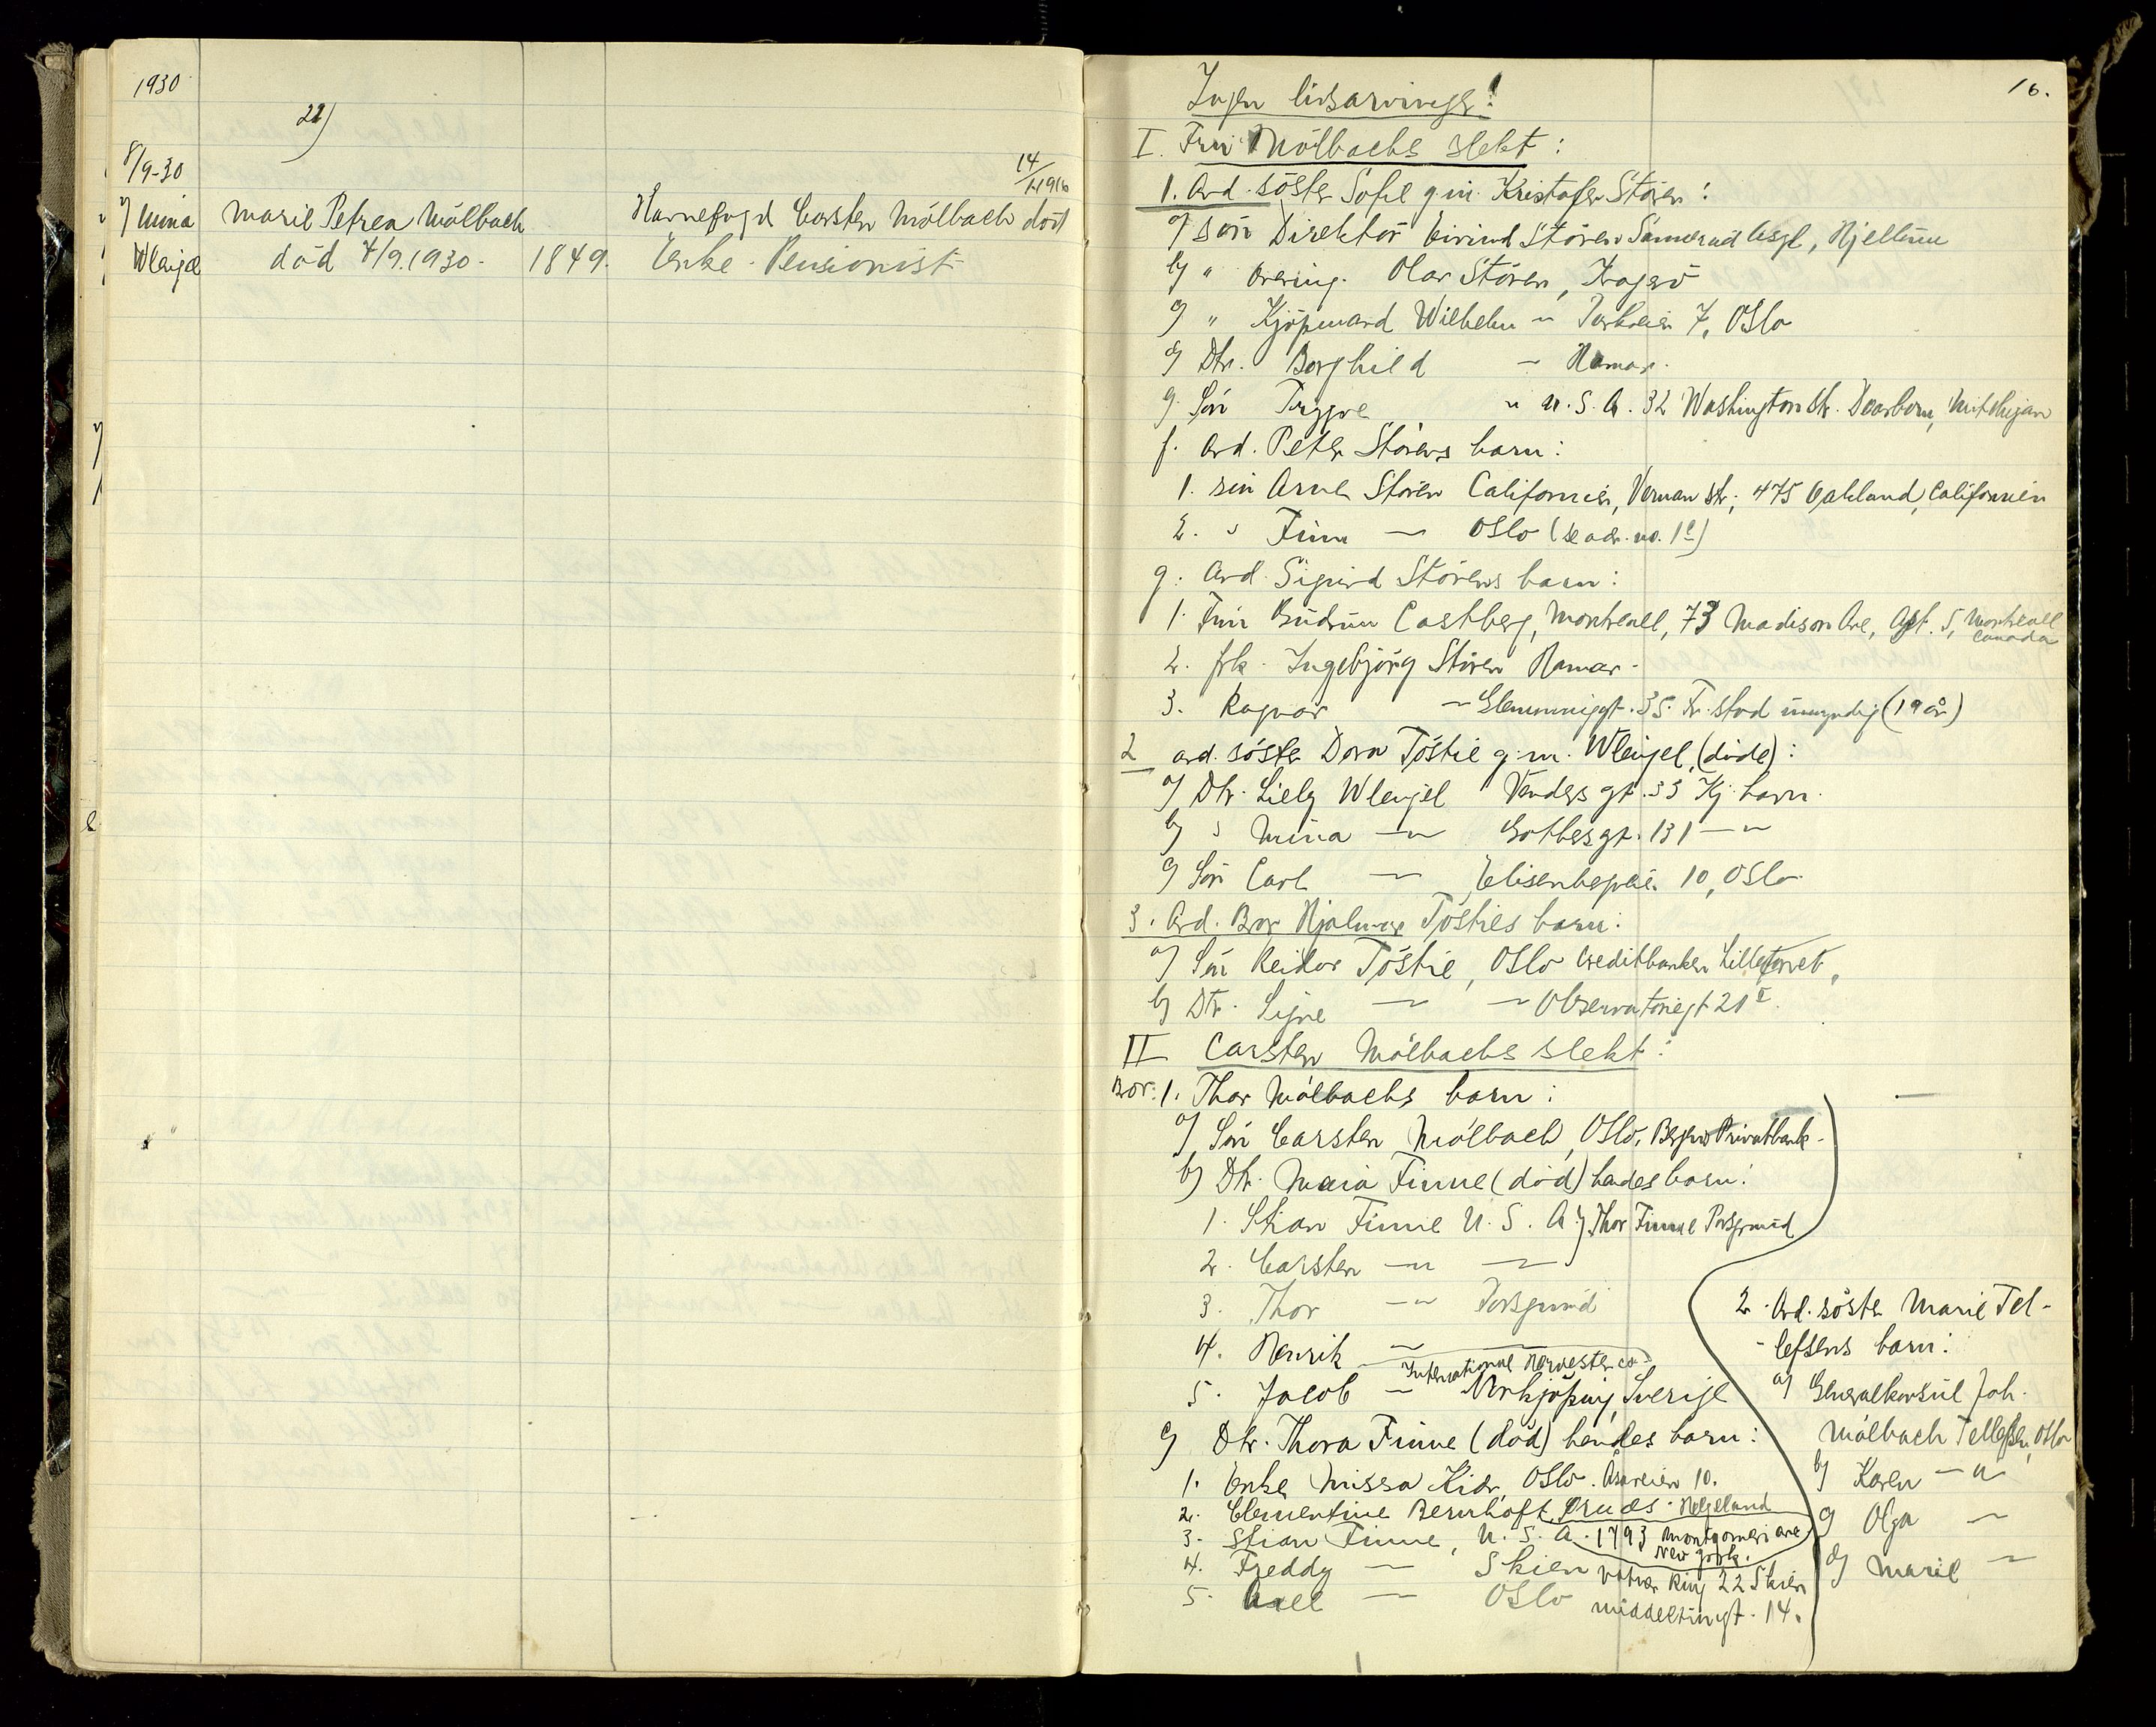 1930
22)
8/9-30
v/ Mina
Wleügel
Marie Petrea Mölbach
död 4/9.1930.
1849.
14/11 1916
Havnefogd Carsten Mölbach död
Enke - Pensionist
16.
Ingen livsarvinger!
I. Fru Mölbachs slekt:
1. Avd. söster Sofie g.m. Kristofer Stören:
a) Sön Direktör Eivind Stören Sannerud Asyl, Hjellum
b) " Overing. Olav Stören, Kragerö
c) " Kjöpmand Wilhelm — 7, Oslo
d) Dtr. Borghild — Hamar.
e) Sön Trygve — U.S.A. 32 Washington Str. Dearborn, Mitchigan
f. Avd. Peter Störens barn:
1. sön Arne Stören Californien, Vernan str, 475 Oakland, Californien
2. " Finn — Oslo (se adr. no. 1c)
g. Avd. Sigurd Störens barn:
1. Fru Gudrun Castberg, Montreall, 73 Madison Ave, Apt. 5, Montreall Canada
2. frk. Ingebjörg Stören Hamar.
3. Ragnar — Glemmiggt. 35 Fr.stad ümyndig (19 år)
2 avd. söster Dora Töstie g.m. Wleügel, (döde):
a) Dtr. Liely Wleügel Vendersgt. 33 Kj.havn.
b) " Mina — Gothersgt. 131 —
c) Sön Carl — Elisenbergveien 10, Oslo
3. Avd. Bror Hjalmar Tösties barn:
a) Sön Reidar Töstie, Oslo Creditbanken Lilletorvet,
b) Dtr. Signe — — Observatoriegt 21 II.
II Carsten Mölbachs slekt:
Bror: 1. Thor Mölbachs barn:
a) Sön Carsten Mölbach, Oslo, Bergens Privatbank.
b) Dtr. Maia Finne (död) hendes barn:
1. Stian Finne U.S.A. v/ Thor Finne Porsgrund
2. Carsten — —
3. Thor — Porsgrund
4. Henrik — —
International Harvester co
5. Jacob — Norkjöping, Sverige
c) Dtr. Thora Finne (död) hendes barn:
1. Enke Missa Kiær, Oslo. Åsaveien 10.
2. Clementine Bernhoft, Helgeland
3. Stian Finne, U.S.A. 1793 Montgomeri ave New York.
4. Freddy — Skien Ring 22 Skien
5. Axel — Oslo Middeltünsgt. 14.
2. Avd. söster Marie Tel-
-lefsens barn:
a) Generalkonsül Joh.
Mölbach Tellefsen, Oslo
b) Karen — "
c) Olga —
d) Marie —